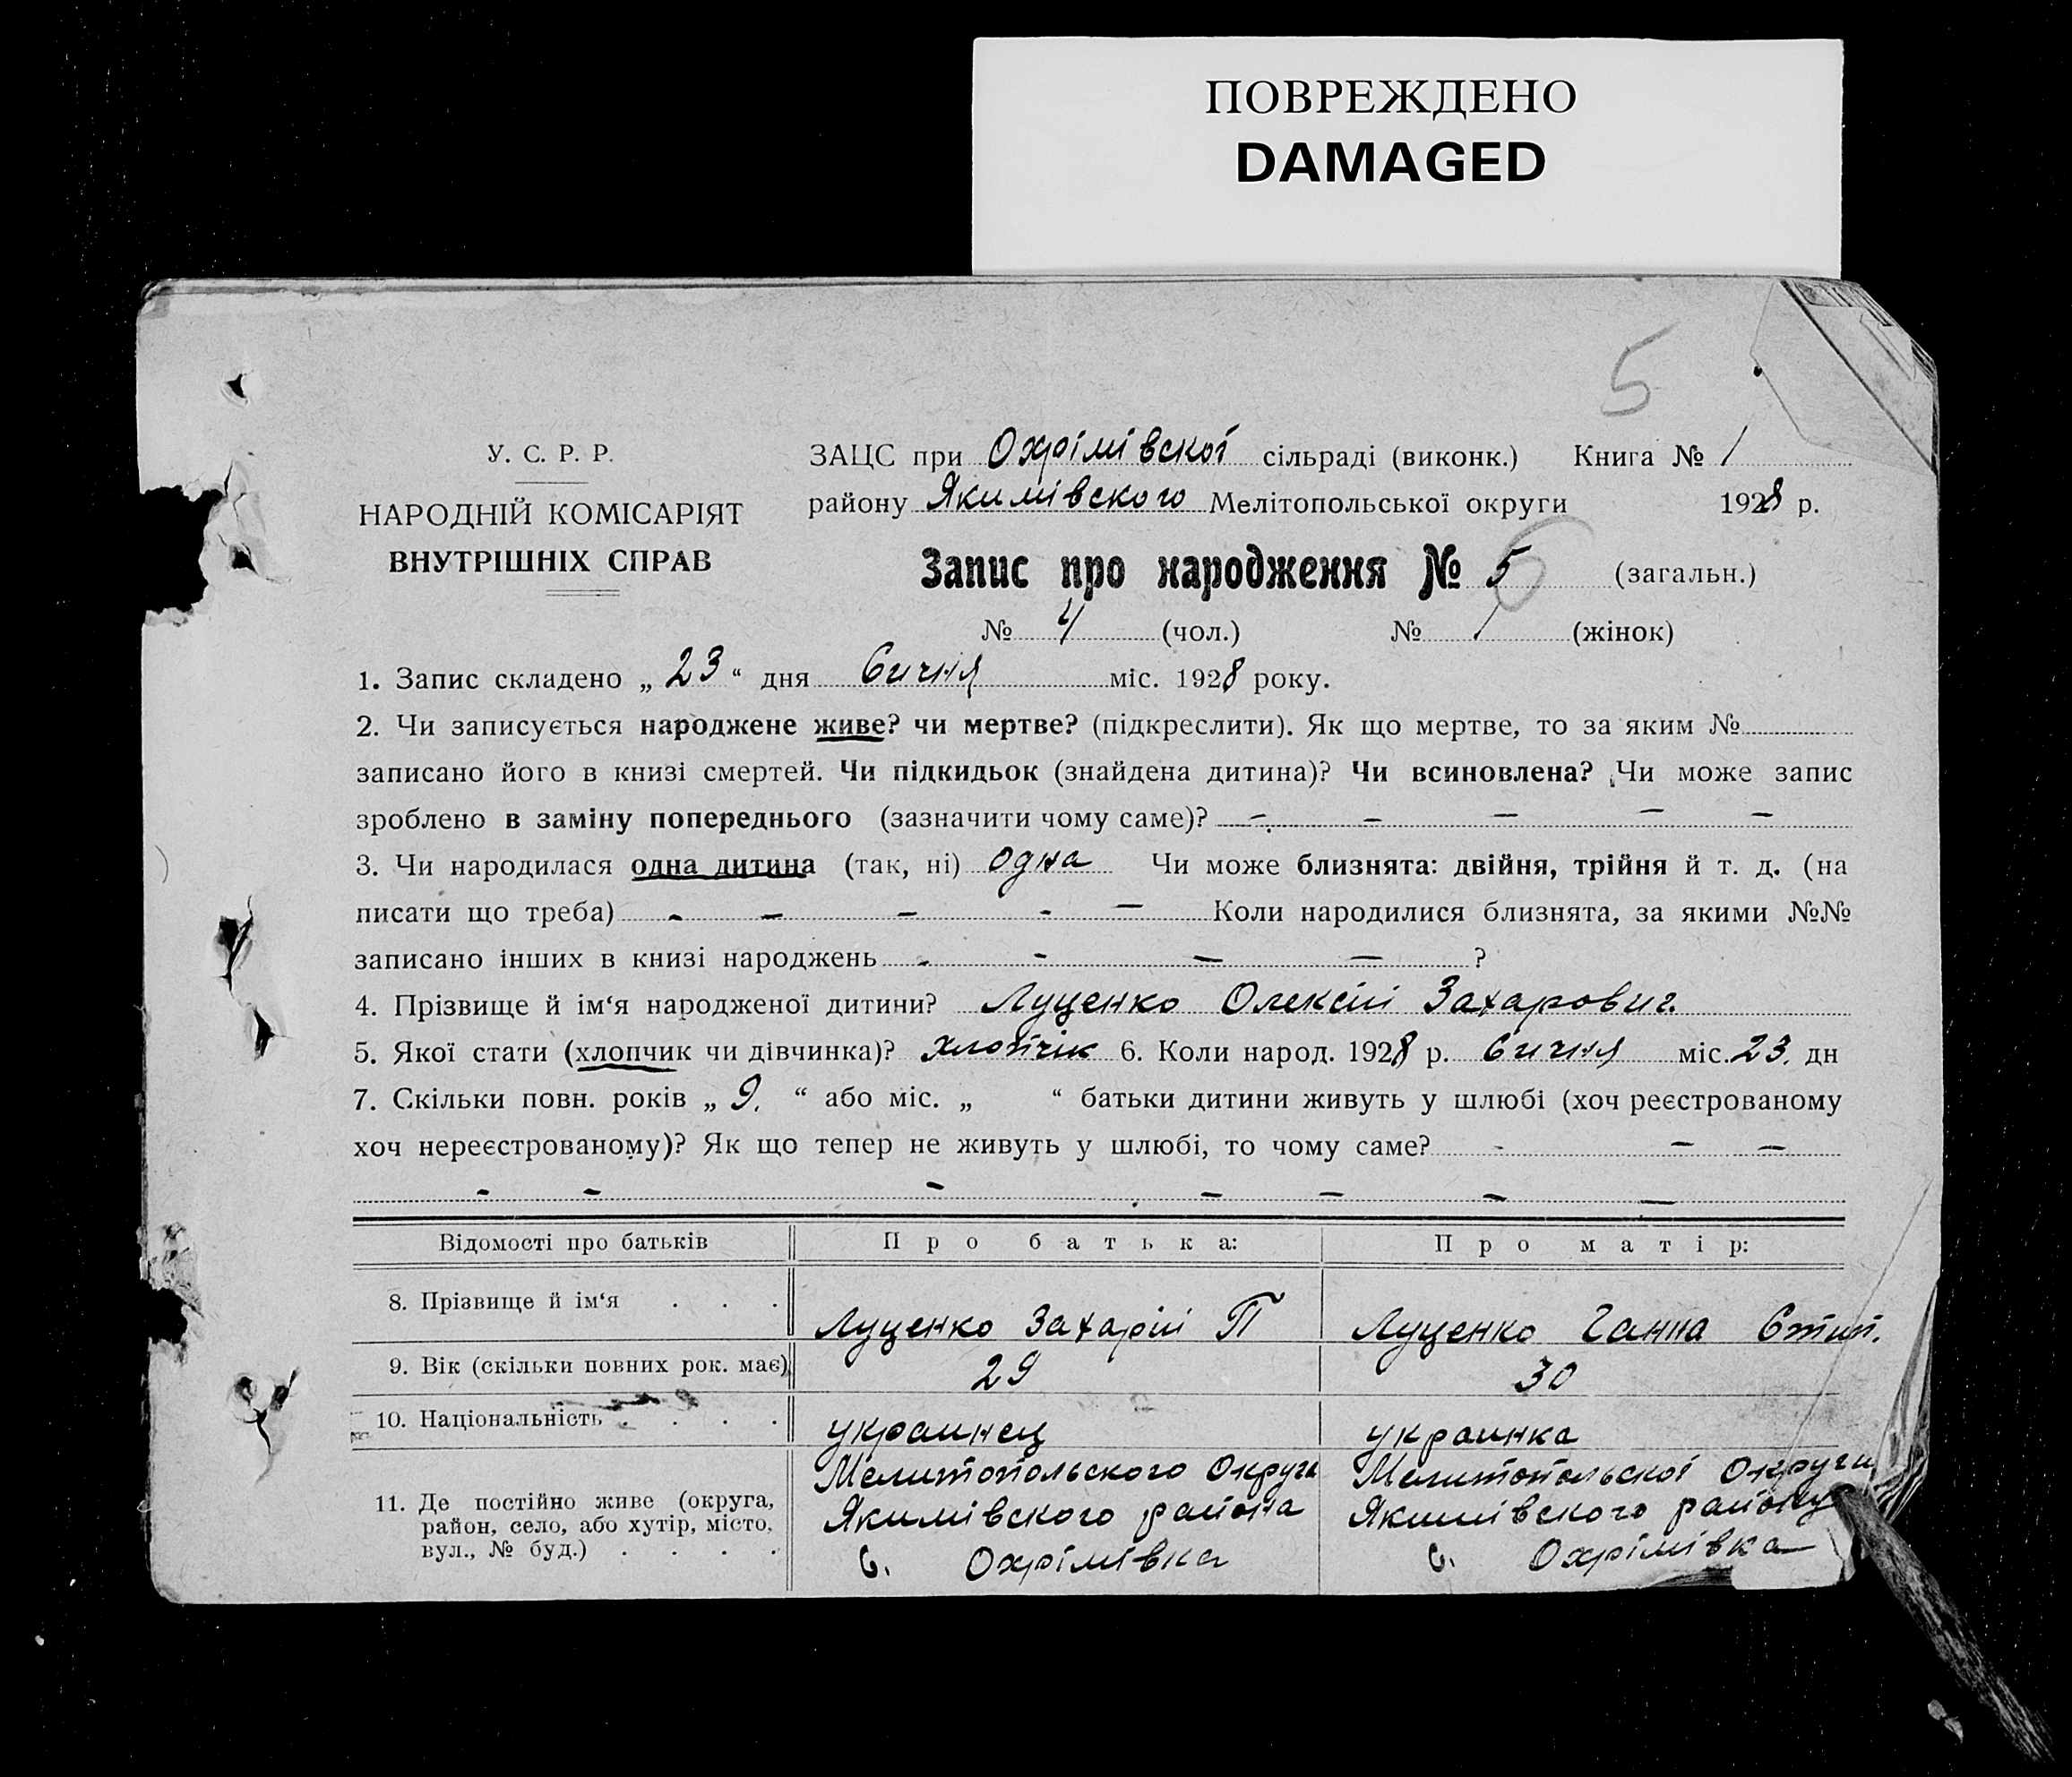 ПОВРЕЖДЕНО
DAMAGED
5
У. С. Р. Р.
НАРОДНІЙ КОМІСАРІЯТ
ВНУТРІШНІХ СПРАВ
ЗАЦС при Охрімівскої сільраді (виконк.) Книга № 1
району Якимівского Мелітопольської округи 1928 р.
Запис про народження № 5 (загальн.)
№ 4 (чол.) № / (жінок)
1. Запис складено „ 23 “ дня Сичня міс. 1928 року.
2. Чи записується народжене живе? чи мертве? (підкреслити). Як що мертве, то за яким №
записано його в книзі смертей. Чи підкидьок (знайдена дитина)? Чи всиновлена? Чи може запис
зроблено в заміну попереднього (зазначити чому саме)? — — — — —
3. Чи народилася одна дитина (так, ні) одна Чи може близнята: двійня, трійня й т. д. (на
писати що треба) - — — - — Коли народилися близнята, за якими №№
записано інших в книзі народжень - - — — ?
4. Прізвище й ім‘я народженої дитини? Луценко Олексій Захарович.
5. Якої стати (хлопчик чи дівчинка)? хлопчік 6. Коли народ. 1928 р. Сичня міс. 23. дн
7. Скільки повн. років „ 9. “ або міс. „ “ батьки дитини живуть у шлюбі (хоч реєстрованому
хоч нереєстрованому)? Як що тепер не живуть у шлюбі, то чому саме? - — —
- - - — — — —
Відомості про батьків Про батька: Про матір:
8. Прізвище й ім‘я . . . Луценко Захарій П Луценко Ганна Стип.
9. Вік (скільки повних рок. має) 29 30
10. Національність . . . . украинец украинка
11. Де постійно живе (округа, район, село, або хутір, місто, вул., № буд.) . . . .
Мелитопольского Округа
Якимівского района
с. Охрімівка
Мелитопольскої Округи
Якимівского району
с. Охрімівка